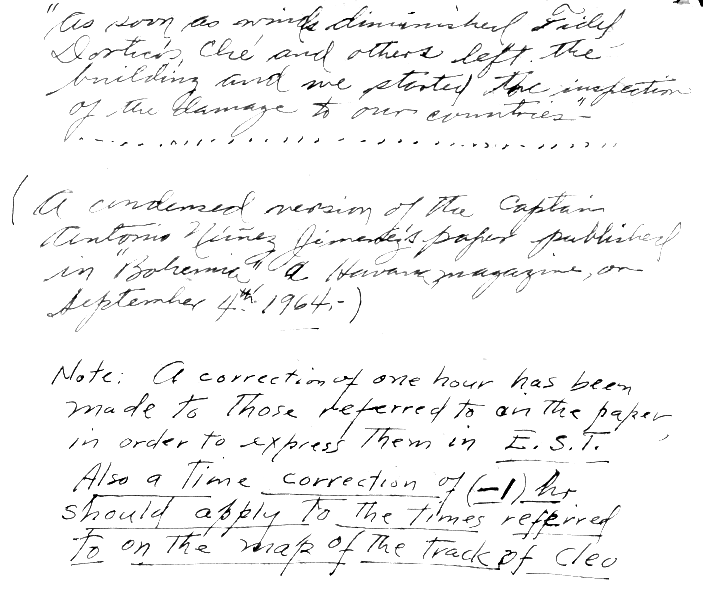 "As soon as winds diminished Fidel
Dorticós, Ché and others left the
building and we started the inspection
of the damage to our countries"-
(A condensed version of the Captain
Antonio Núñez Jimenez's paper published
in "Bohemia" a Havana magazine, on
September 4th 1964.-)
Note: A correction of one hour has been
made to those referred to on the paper,
in order to express them in E.S.T.
Also a time correction of (-1) hr
should apply to the times referred
to on the map of the track of Cleo